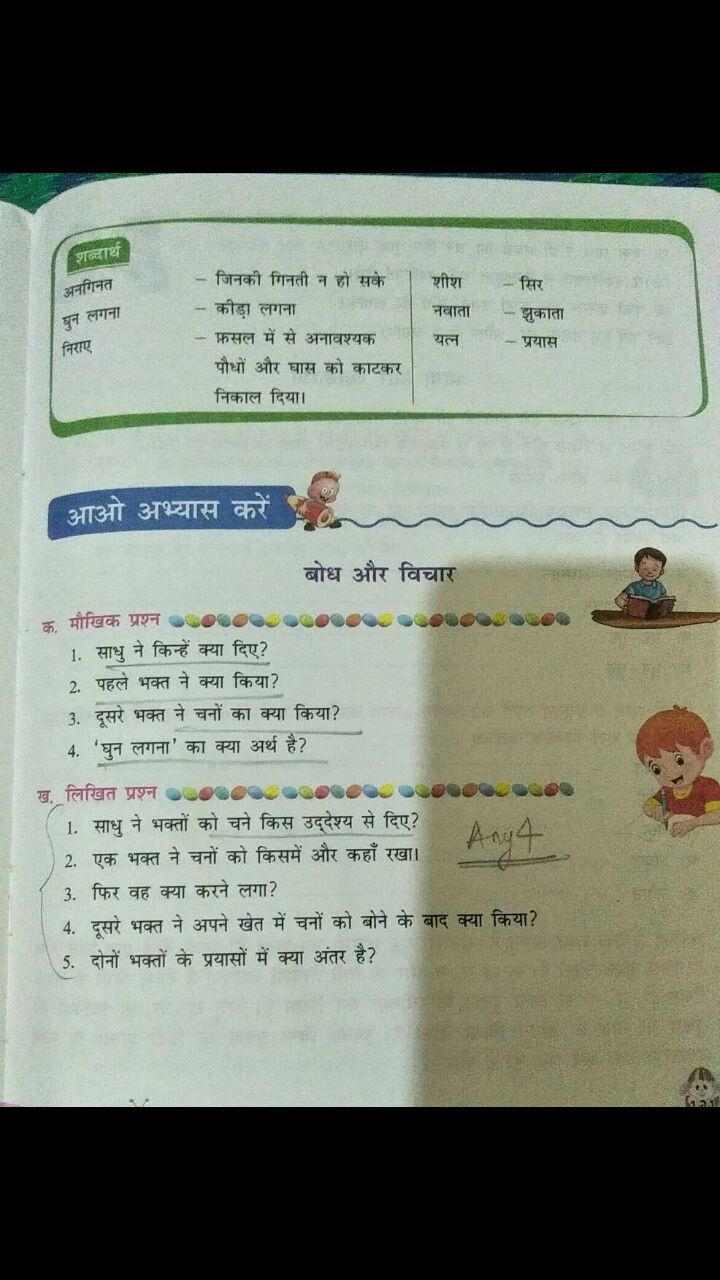 शब्दार्थ
अनगिनत – जिनकी गिनती न हो सके
घुन लगना – कीड़ा लगना
निराए – फ़सल में से अनावश्यक
पौधों और घास को काटकर
निकाल दिया।
शीश – सिर
नवाता – झुकाता
यत्न – प्रयास
आओ अभ्यास करें
बोध और विचार
क. मौखिक प्रश्न
1. साधु ने किन्हें क्या दिए?
2. पहले भक्त ने क्या किया?
3. दूसरे भक्त ने चनों का क्या किया?
4. ‘घुन लगना’ का क्या अर्थ है?
ख. लिखित प्रश्न
1. साधु ने भक्तों को चने किस उद्देश्य से दिए?
Any 4
2. एक भक्त ने चनों को किसमें और कहाँ रखा।
3. फिर वह क्या करने लगा?
4. दूसरे भक्त ने अपने खेत में चनों को बोने के बाद क्या किया?
5. दोनों भक्तों के प्रयासों में क्या अंतर है?